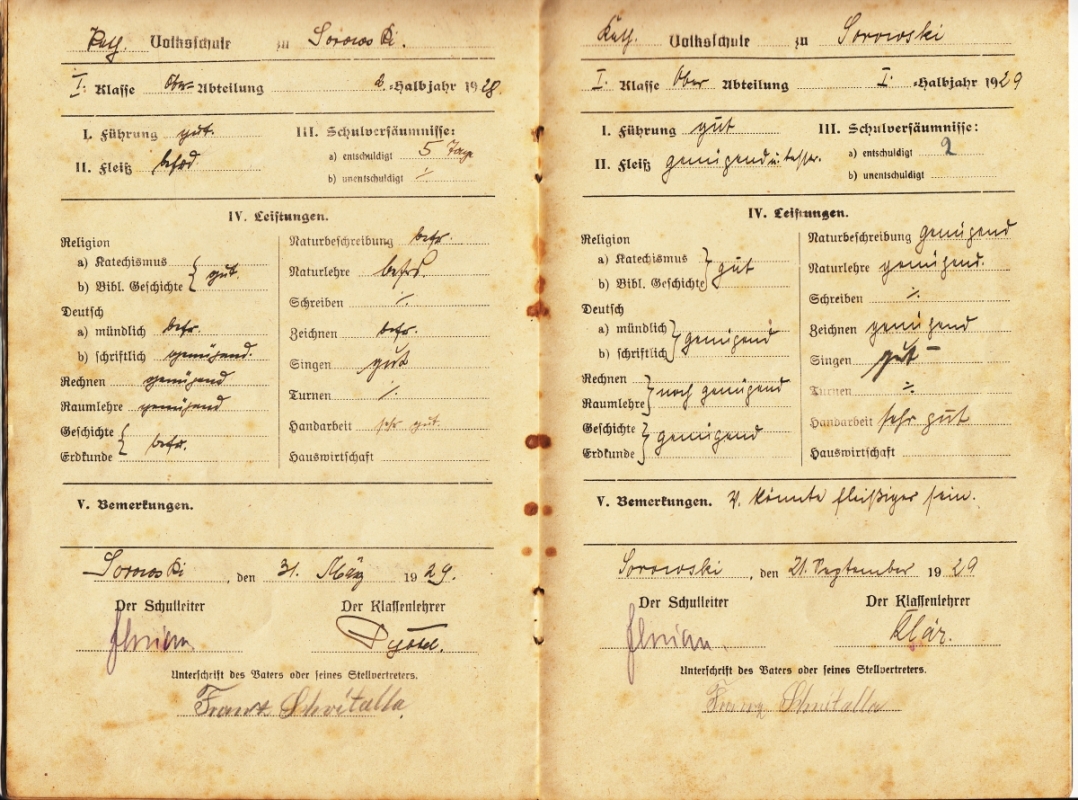 Kath. Volksschule zu Sorowski.
I. Klasse Ober- Abteilung 2. Halbjahr 1928
I. Führung gut.
II. Fleiß befrd.
III. Schulversäumnisse:
a) entschuldigt 5 Tage
b) unentschuldigt ⁒
IV. Leistungen.
Religion
a) Katechismus
b) Bibl. Geschichte } gut.
Deutsch
a) mündlich befr.
b) schriftlich genügend.
Rechnen genügend
Raumlehre genügend
Geschichte
Erdkunde } befr.
Naturbeschreibung befr.
Naturlehre befrd.
Schreiben ⁒
Zeichnen befr.
Singen gut
Turnen ⁒
Handarbeit sehr gut.
Hauswirtschaft
V. Bemerkungen.
Sorowski, den 31. März 1929.
Der Schulleiter Der Klassenlehrer
Unterschrift des Vaters oder seines Stellvertreters.
Franz
Kath. Volksschule zu Sorowski
I. Klasse Ober Abteilung I. Halbjahr 1929
I. Führung gut
II. Fleiß genügend u. besser.
III. Schulversäumnisse:
a) entschuldigt 2
b) unentschuldigt
IV. Leistungen.
Religion
a) Katechismus
b) Bibl. Geschichte } gut
Deutsch
a) mündlich
b) schriftlich } genügend
Rechnen
Raumlehre } noch genügend
Geschichte
Erdkunde } genügend
Naturbeschreibung genügend
Naturlehre genügend.
Schreiben ⁒
Zeichnen genügend
Singen gut –
Turnen ⁒
Handarbeit sehr gut
Hauswirtschaft
V. Bemerkungen. V. könnte fleißiger sein.
Sorowski, den 21. September 1929
Der Schulleiter Der Klassenlehrer
Klár.
Unterschrift des Vaters oder seines Stellvertreters.
Franz